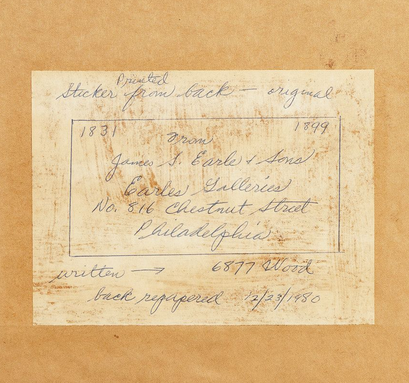 Printed
Sticker from back - original
1831 1899
From
James S. Earle & Sons
Earles Galleries
No. 816 Chestnut Street
Philadelphia
written → 6877 Wood
back repapered 12/23/1980